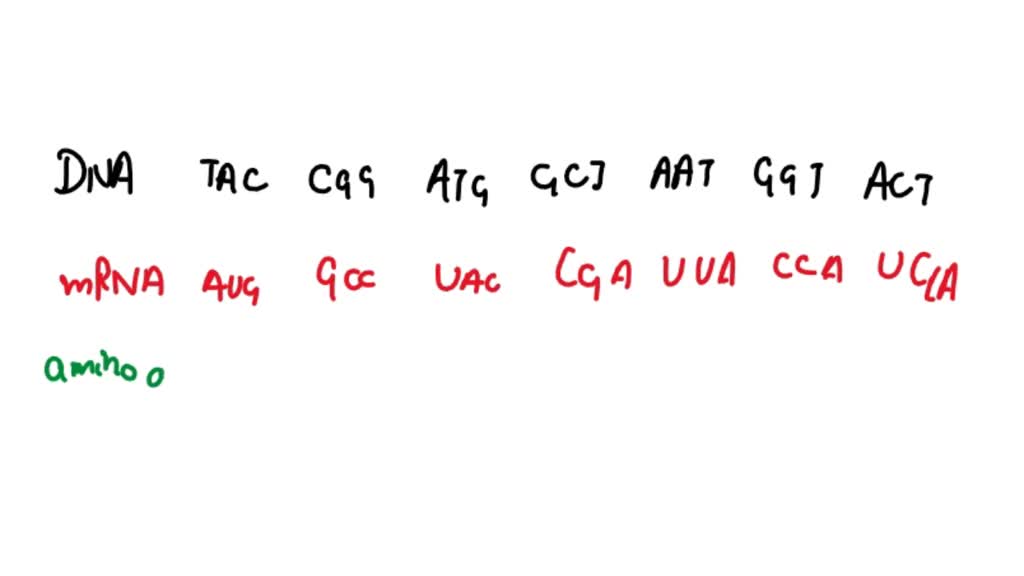 DNA TAC CGG ATG GCT AAT GGT ACT
mRNA AUG GCC UAC CGA UUA CCA UGA
amino